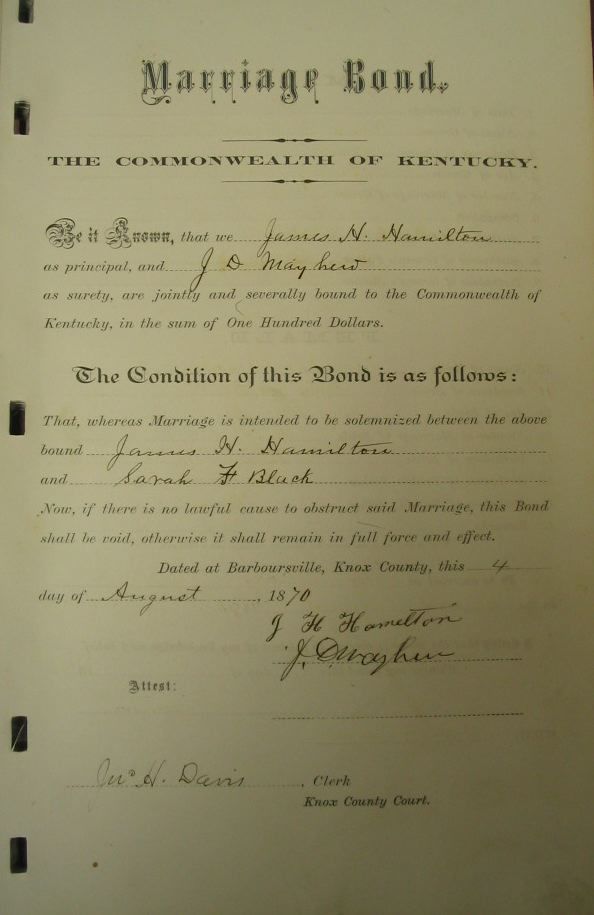 Marriage Bond.
THE COMMONWEALTH OF KENTUCKY.
Be it Known, that we James H. Hamilton
as principal, and J D Mayhew
as surety, are jointly and severally bound to the Commonwealth of
Kentucky, in the sum of One Hundred Dollars.
The Condition of this Bond is as follows:
That, whereas Marriage is intended to be solemnized between the above
bound James H. Hamilton
and Sarah F Black
Now, if there is no lawful cause to obstruct said Marriage, this Bond
shall be void, otherwise it shall remain in full force and effect.
Dated at Barboursville, Knox County, this 4
day of August, 1870
J H Hamelton
J. D. Mayhew
Attest:
Jno H. Davis, Clerk
Knox County Court.